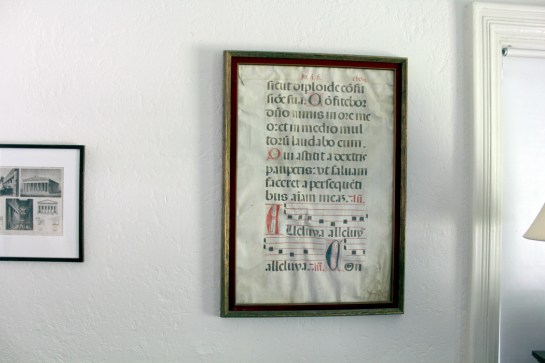 sicut diploide cōfu
siōe sua. Cōfitebor
dño nimis in ore me
o: et in medio mul
torū laudabo eum.
Qui astitit a dextris
pauperis: ut saluam
faceret a persequēti
bus aīam meaʒ. añ.
Alleluya alleluy
alleluya. añ. Con